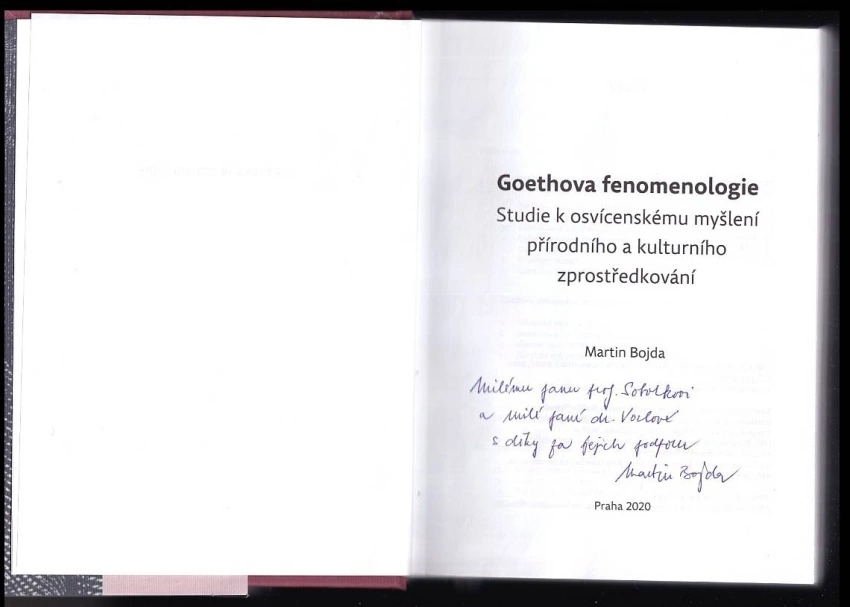 Goethova fenomenologie
Studie k osvícenskému myšlení
přírodního a kulturního
zprostředkování
Martin Bojda
Milému panu prof. Sobotkovi
a milé paní dr. Voclové
s díky za jejich podporu
Martin Bojda
Praha 2020